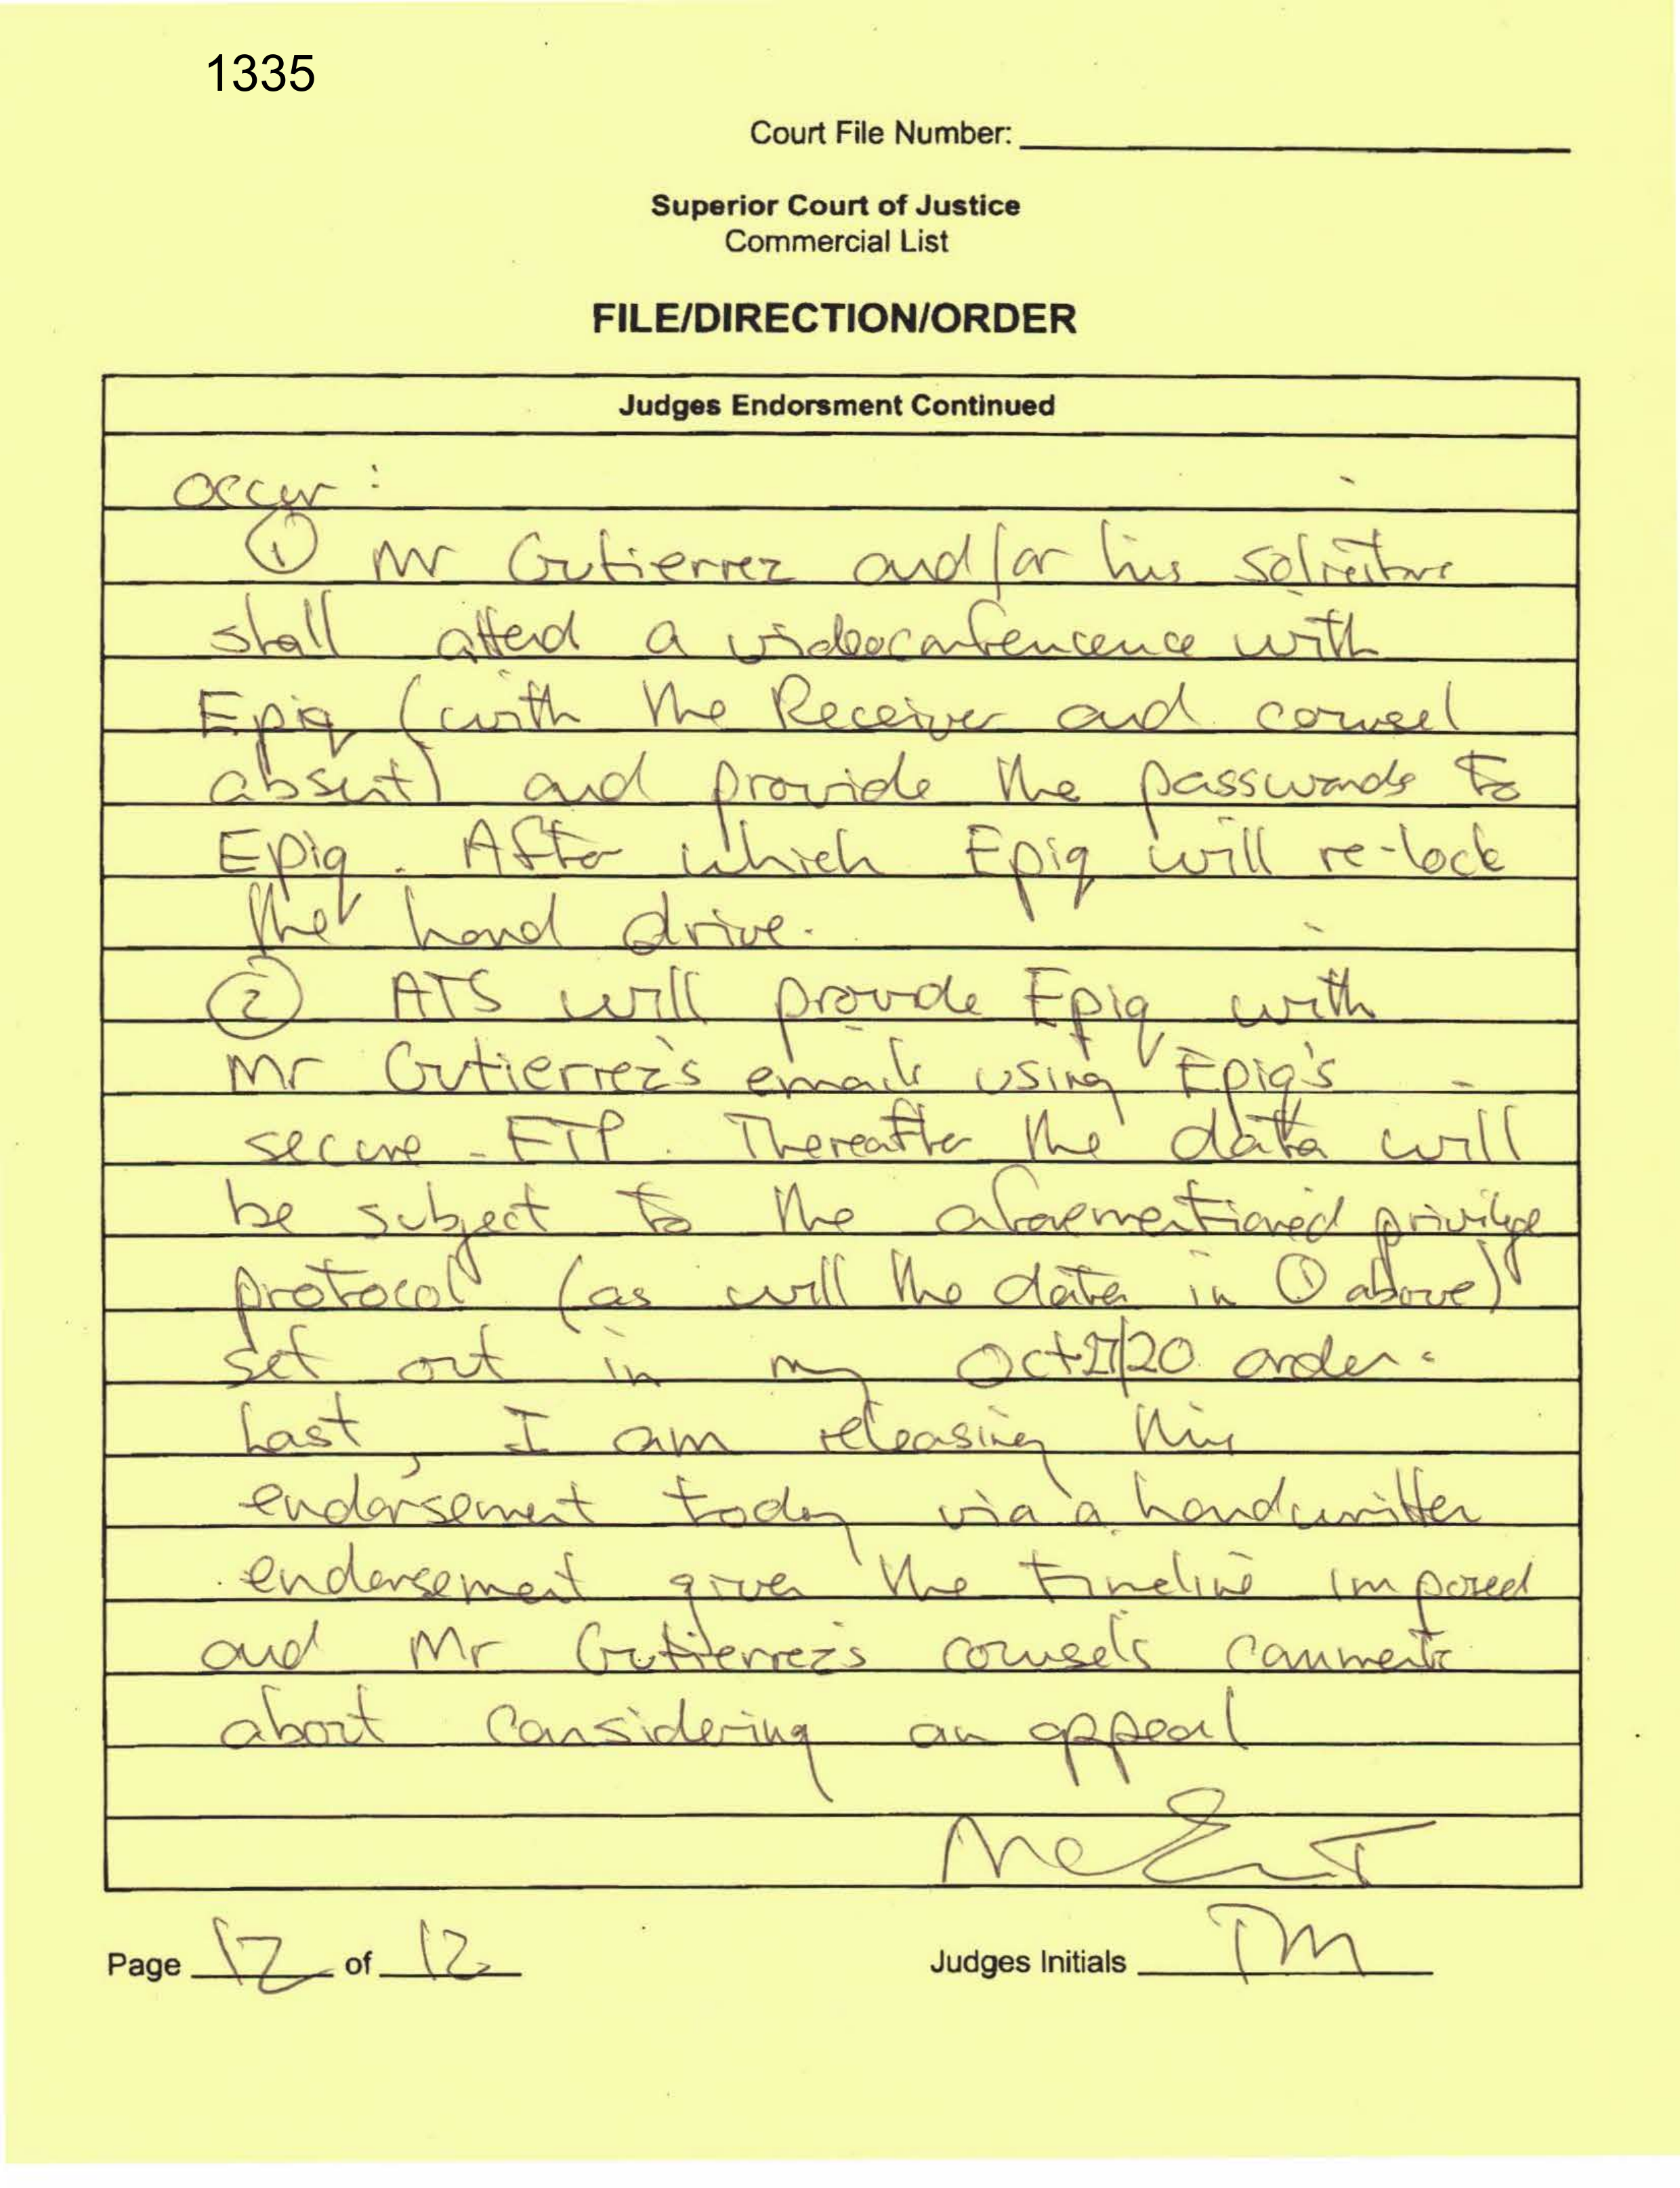 1335
Court File Number:
Superior Court of Justice
Commercial List
FILE/DIRECTION/ORDER
Judges Endorsment Continued
occur :
① Mr Gutierrez and/or his solicitors
shall attend a videoconference with
Epiq (with the Receiver and counsel
absent) and provide the passwords to
Epiq. After which Epiq will re-lock
the hard drive.
② ATS will provide Epiq with
Mr Gutierrez's emails using Epiq's
secure FTP. Thereafter the data will
be subject to the aforementioned privilege
protocol (as will the data in ① above)
set out in my Oct 27/20 order.
Last, I am releasing this
endorsement today via a handwritten
endorsement given the timeline imposed
and Mr Gutierrez's counsel's comments
about considering an appeal
McET
Page 12 of 12
Judges Initials TM